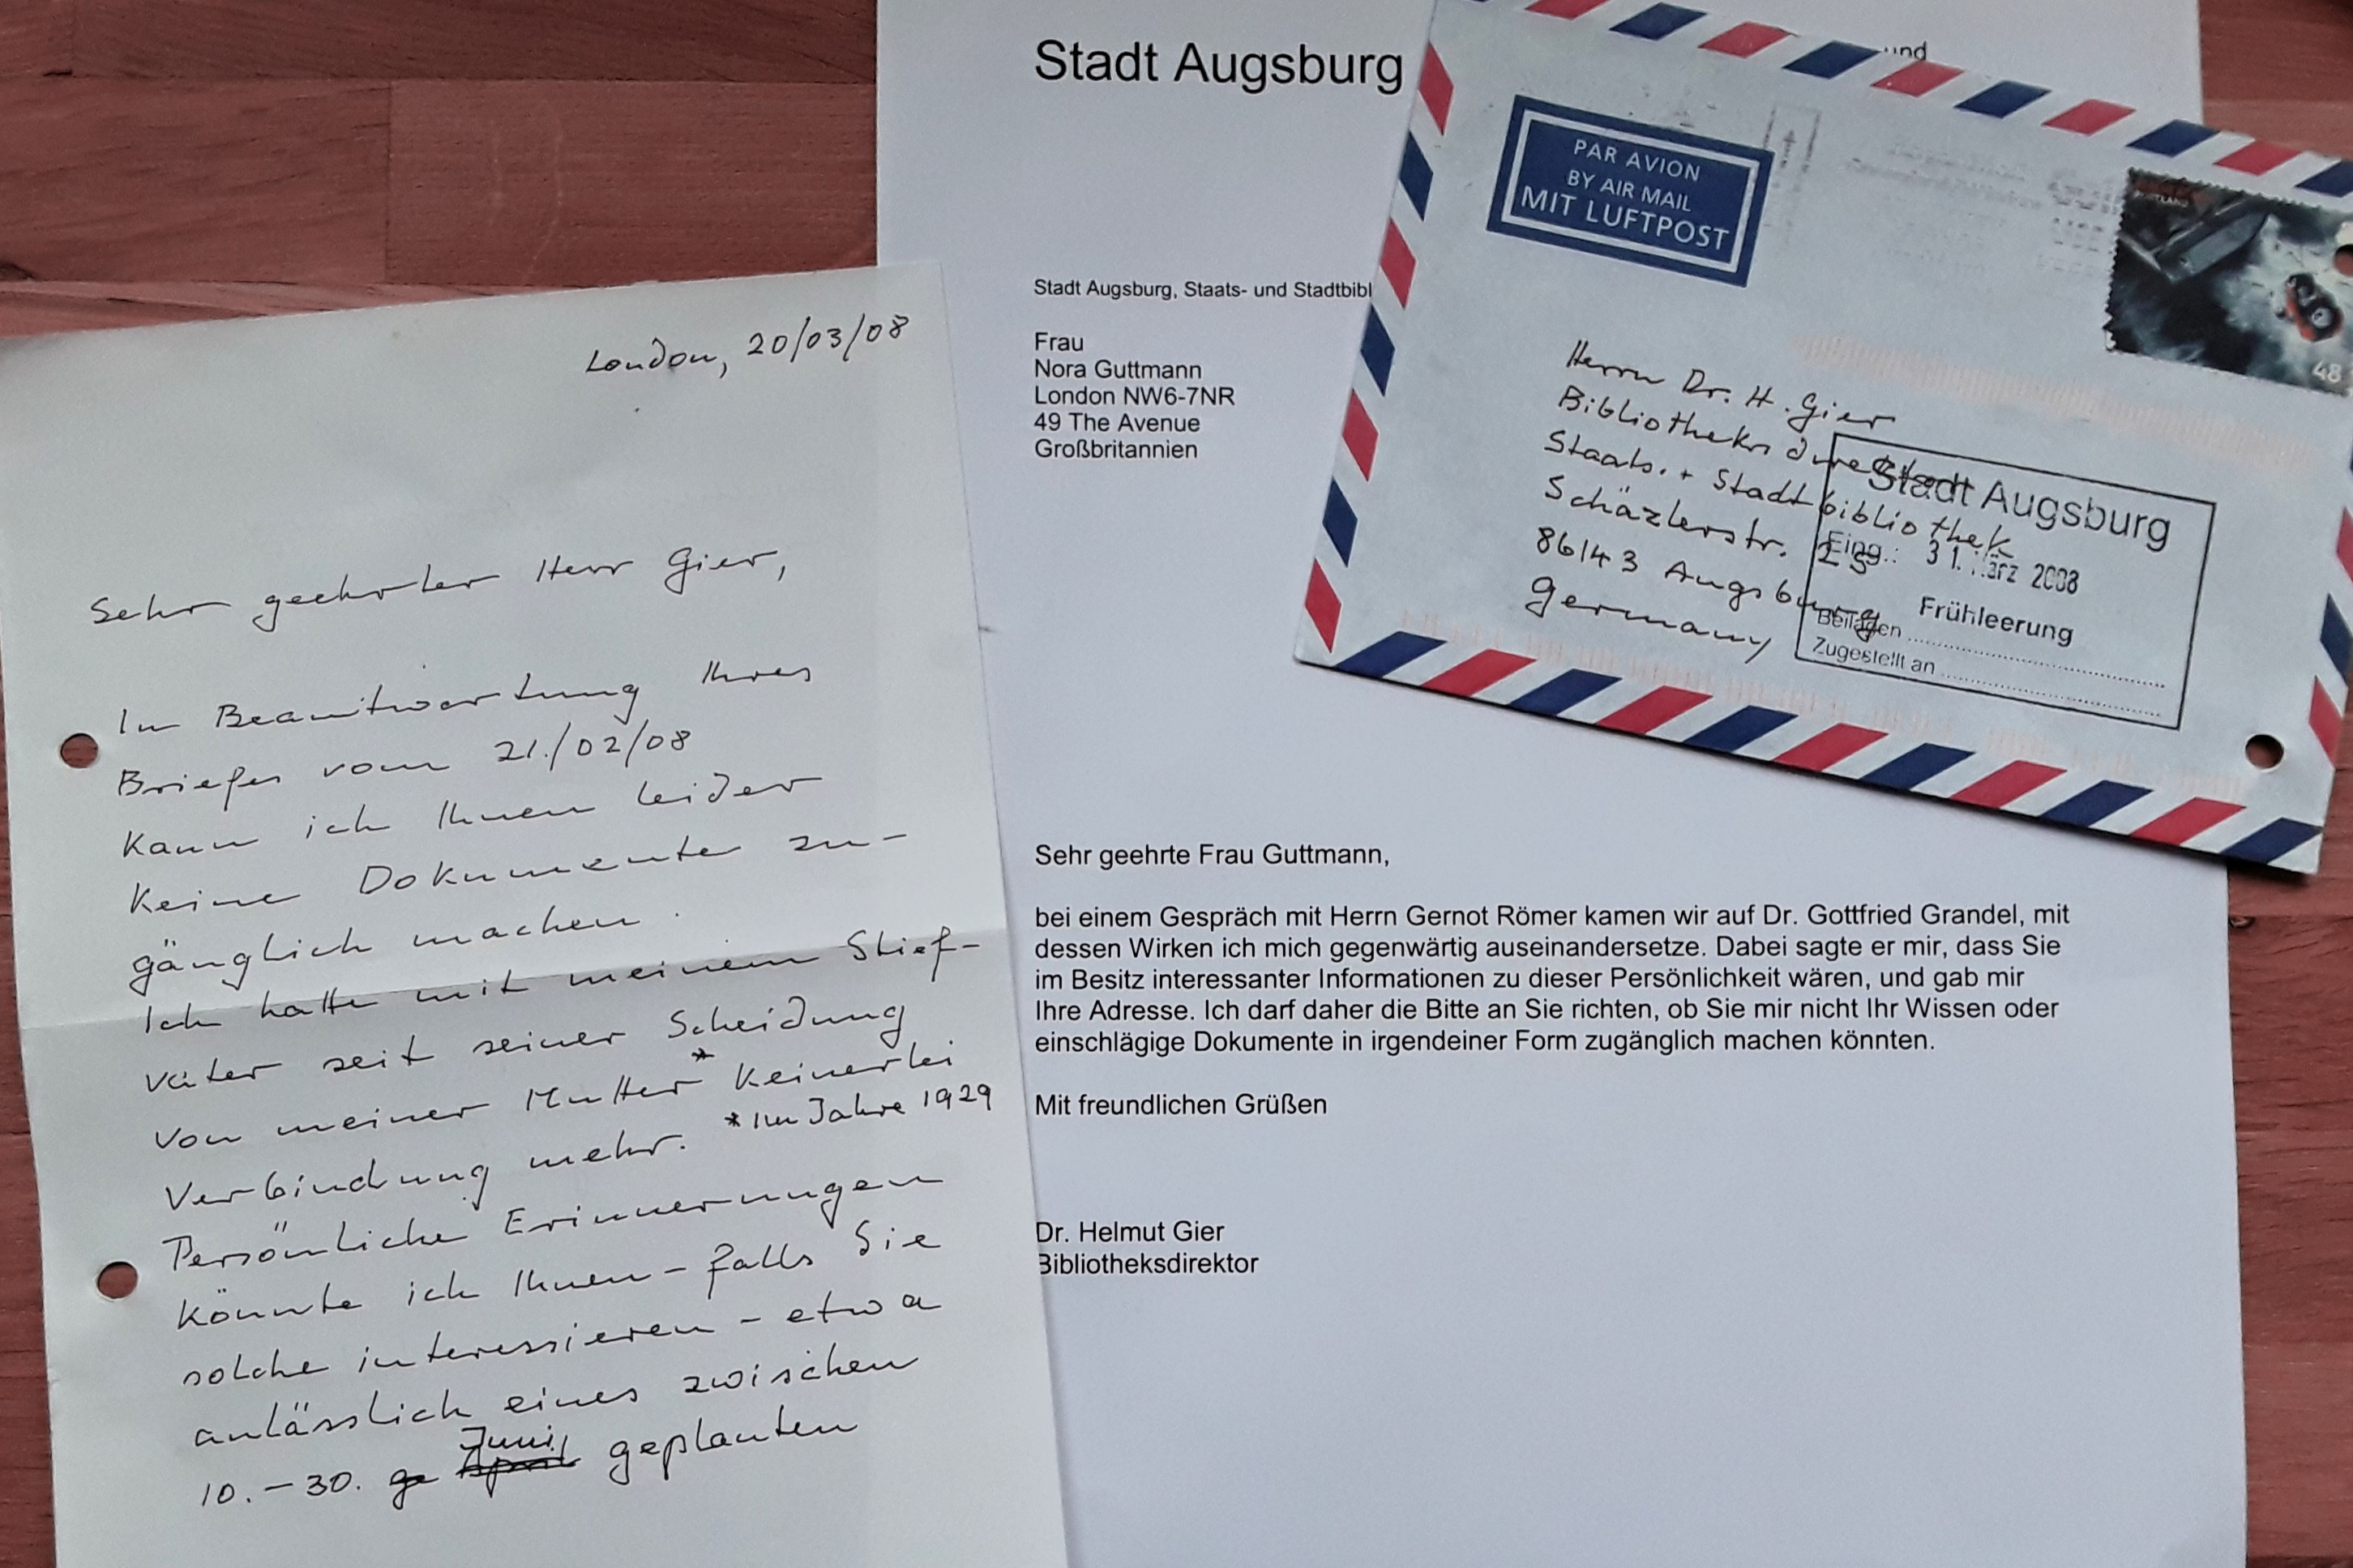 London, 20/03/08
Sehr geehrter Herr Gier,
In Beantwortung Ihres
Briefes vom 21./02/08
kann ich Ihnen leider
keine Dokumente zu-
gänglich machen.
Ich hatte mit meinem Stief-
vater seit seiner Scheidung
von meiner Mutter* keinerlei
Verbindung mehr. *im Jahre 1929
Persönliche Erinnerungen
könnte ich Ihnen – falls Sie
solche interessieren – etwa
anlässlich eines zwischen
Juni
10.–30. ge April geplanten
Stadt Augsburg
und
Stadt Augsburg, Staats- und Stadtbibl
Frau
Nora Guttmann
London NW6-7NR
49 The Avenue
Großbritannien
Sehr geehrte Frau Guttmann,
bei einem Gespräch mit Herrn Gernot Römer kamen wir auf Dr. Gottfried Grandel, mit
dessen Wirken ich mich gegenwärtig auseinandersetze. Dabei sagte er mir, dass Sie
im Besitz interessanter Informationen zu dieser Persönlichkeit wären, und gab mir
Ihre Adresse. Ich darf daher die Bitte an Sie richten, ob Sie mir nicht Ihr Wissen oder
einschlägige Dokumente in irgendeiner Form zugänglich machen könnten.
Mit freundlichen Grüßen
Dr. Helmut Gier
Bibliotheksdirektor
PAR AVION
BY AIR MAIL
MIT LUFTPOST
48
Herrn Dr. H. Gier
Bibliotheksdirektor
Staats. + Stadtbibliothek
Schäzlerstr. 25
86143 Augsburg
Germany
Stadt Augsburg
Eing.: 31. März 2008
Frühleerung
Beilagen
Zugestellt an